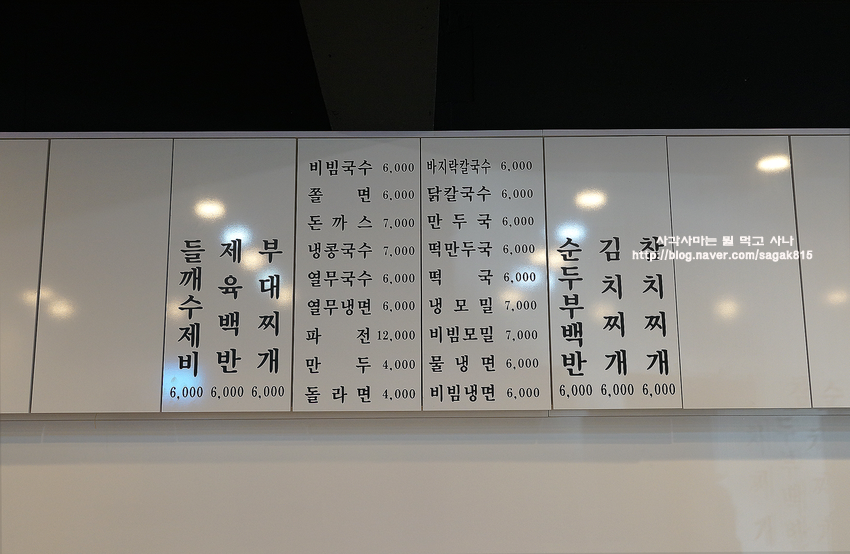 들깨수제비 6,000
제육백반 6,000
부대찌개 6,000
비빔국수 6,000
쫄면 6,000
돈까스 7,000
냉콩국수 7,000
열무국수 6,000
열무냉면 6,000
파전 12,000
만두 4,000
돌라면 4,000
바지락칼국수 6,000
닭칼국수 6,000
만두국 6,000
떡만두국 6,000
떡국 6,000
냉모밀 7,000
비빔모밀 7,000
물냉면 6,000
비빔냉면 6,000
순두부백반 6,000
김치찌개 6,000
참치찌개 6,000
사각사마는 뭘 먹고 사나
http://blog.naver.com/sagak815